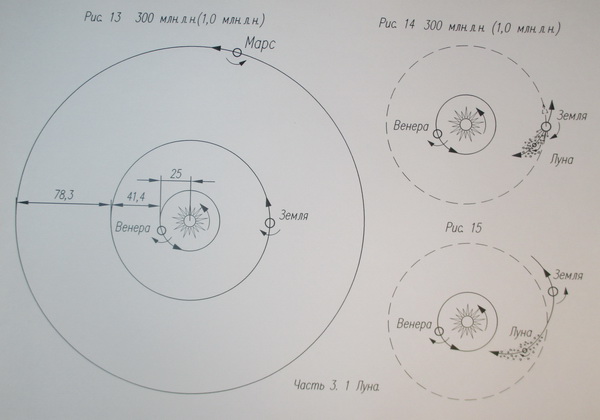 Рис. 13 300 млн.л.н.(1,0 млн.л.н.)
Марс
25
78,3
41,4
Венера
Земля
Рис. 14 300 млн.л.н. (1,0 млн.л.н.)
Венера
Земля
Луна
Рис. 15
Земля
Венера
Луна
Часть 3. 1 Луна